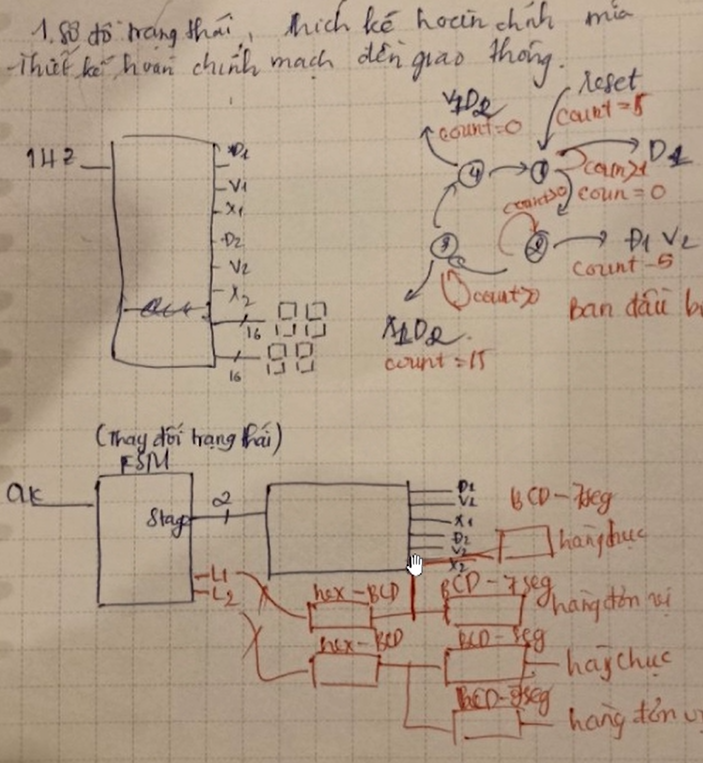 1. Sơ đồ trạng thái, thích kế hoàn chỉnh mia
-Thiết kế hoàn chỉnh mạch đèn giao thông.
1Hz
D1
V1
X1
D2
V2
X2
16
16
V1D2
count=0
reset
count=15
4
1
D1
coun>1
coun=0
3
2
D1 V2
count=5
Ban đầu
count>0
X1D2
count=15
(Thay đổi trạng thái)
FSM
clk
Stag
2
D1
V1
X1
D2
V2
X2
BCD-7seg
hàng chục
L1
L2
hex-BCD
BCD-7seg
hàng đơn vị
hex-BCD
BCD-7seg
hàng chục
BCD-7seg
hàng đơn vị